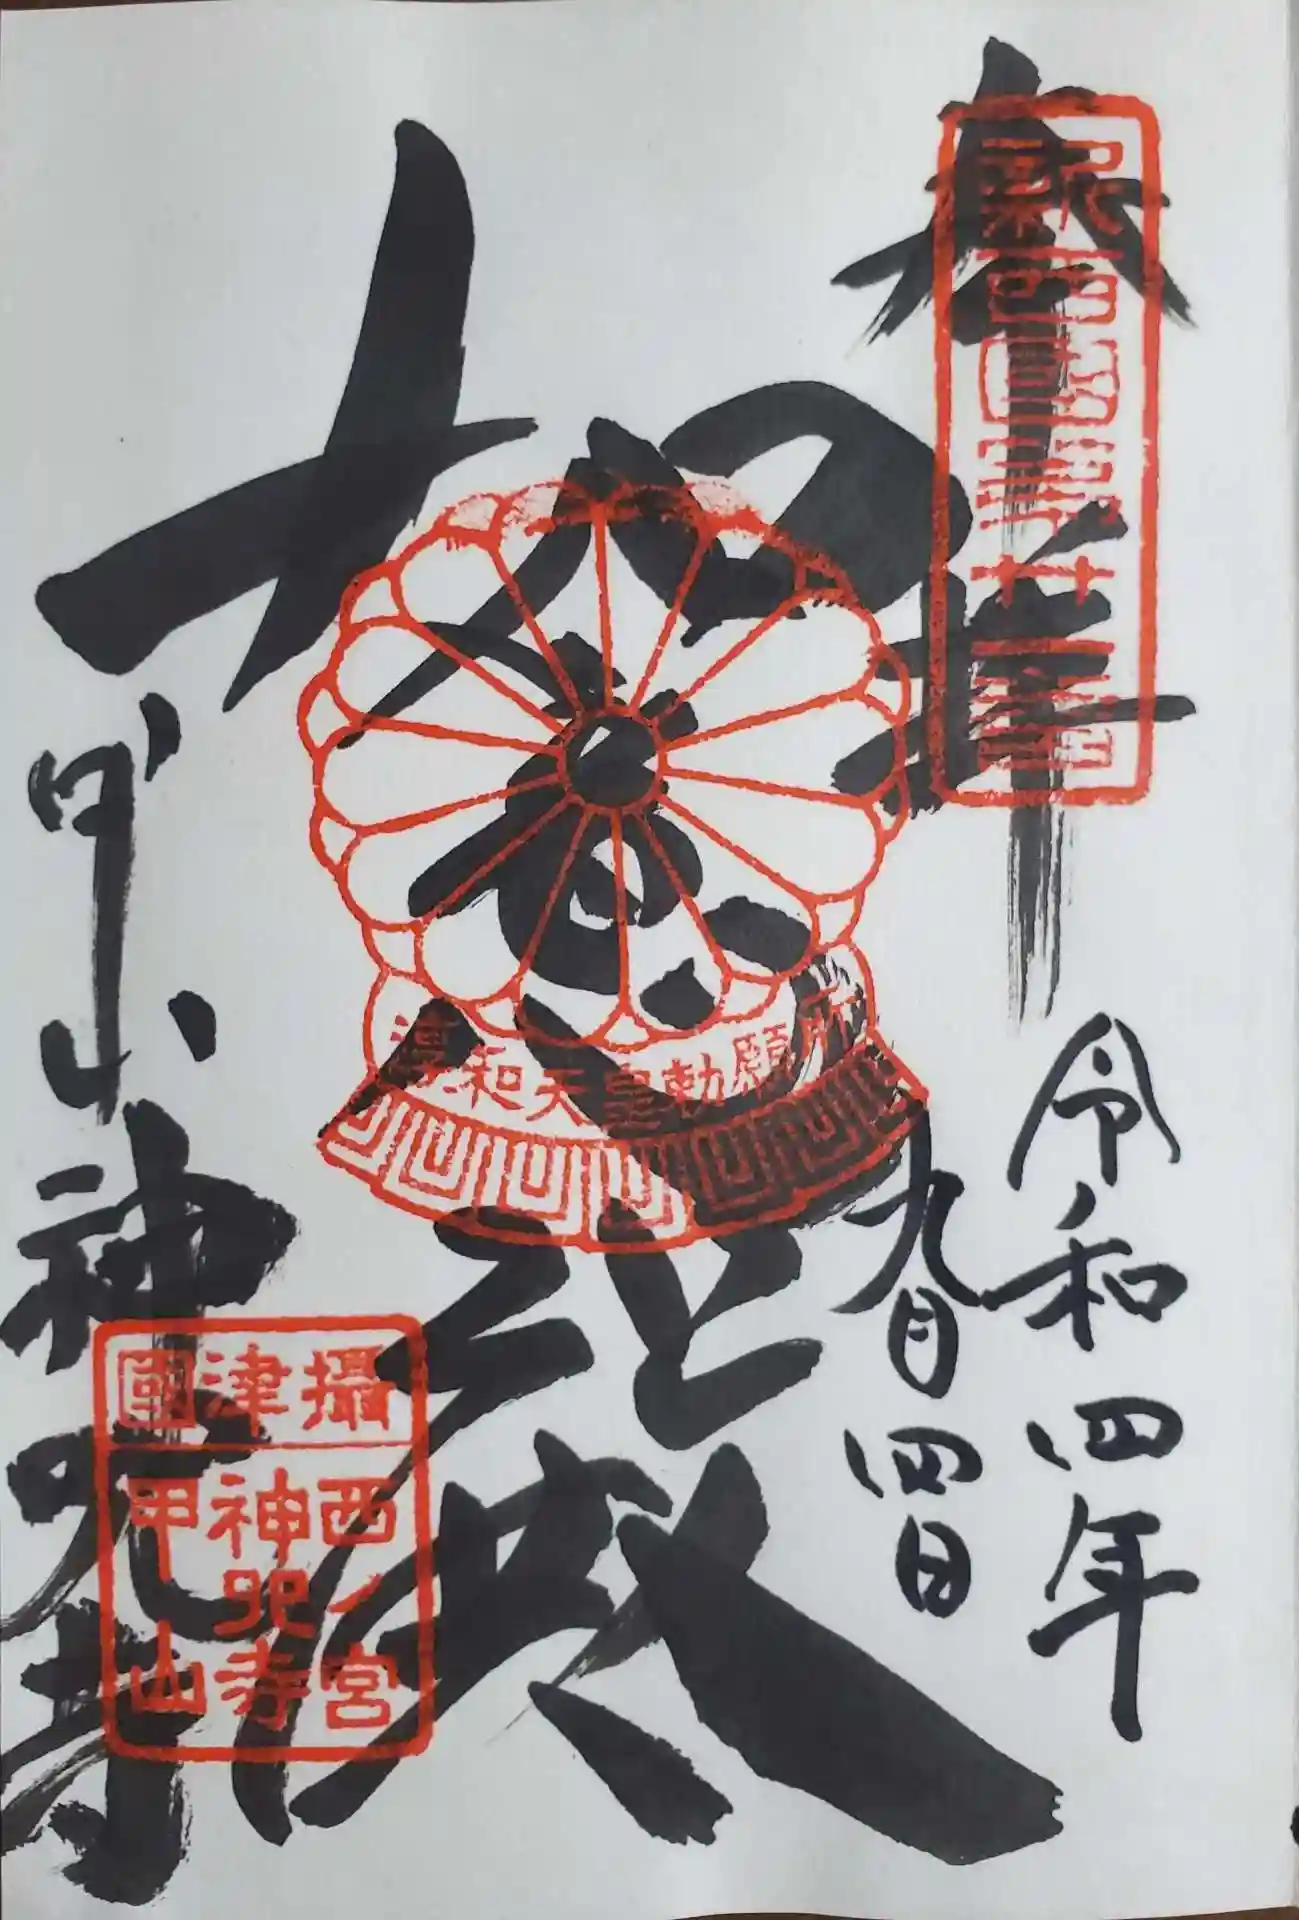 奉拝
令和四年
九月四日
大悲殿
甲山神呪寺
淳和天皇勅願所
攝津國
西ノ宮
神呪寺
甲山